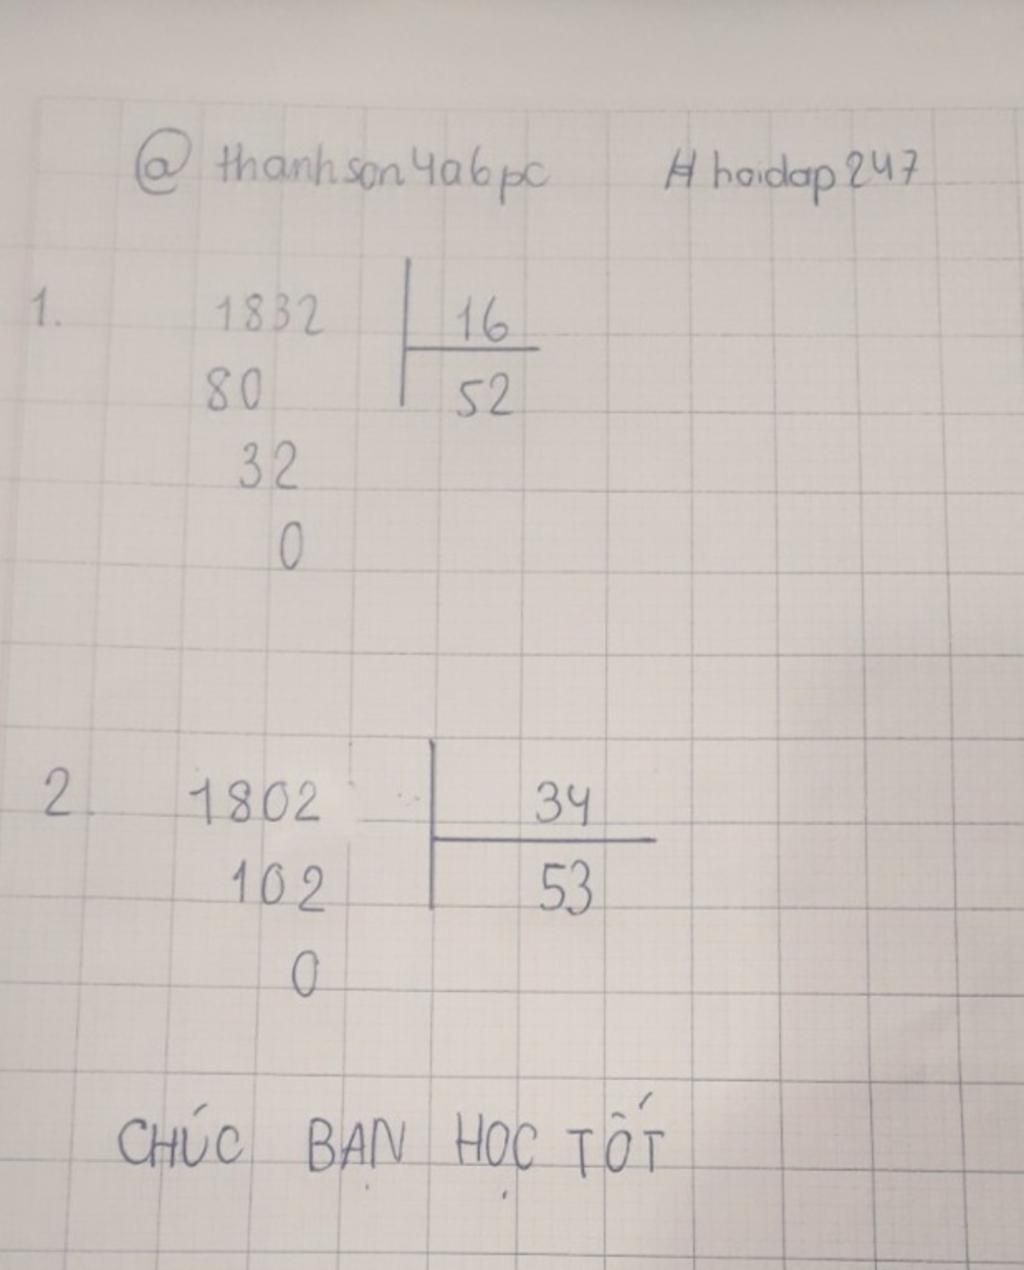 @ thanhson4a6pc # hoidap247
1. 1832 16
80 52
32
0
2 1802 34
102 53
0
CHÚC BẠN HỌC TỐT